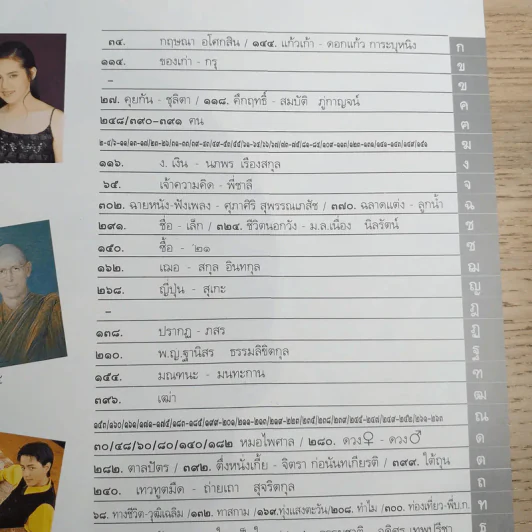 ๓๔. กฤษณา อโศกสิน / ๑๔๔. แก้วเก้า - ดอกแก้ว การะบุหนิง ก
๑๑๔. ของเก่า - กรุ ข
- ฃ
๒๗. คุยกัน - ชุลิตา / ๑๑๘. คึกฤทธิ์ - สมบัติ ภู่กาญจน์ ค
๒๔๘/๓๙๐-๓๙๑ ฅน ฅ
ฆ
๑๑๖. ง. เงิน - นภพร เรืองสกุล ง
๖๕. เจ้าความคิด - พี่ชาลี จ
๓๐๒. ฉายหนัง-ฟังเพลง - ศุภาศิริ สุพรรณเภสัช / ๓๗๐. ฉลาดแต่ง - ลูกน้ำ ฉ
๒๙๑. ชื่อ - เล็ก / ๓๒๔. ชีวิตนอกวัง - ม.ล.เนื่อง นิลรัตน์ ช
๑๕๐. ซื้อ - ๒๑ ซ
๑๖๒. เฌอ - สกุล อินทกุล ฌ
๒๖๘. ญี่ปุ่น - สุเกะ ญ
- ฎ
๑๓๘. ปรากฏ - ภสร ฏ
๒๑๐. พ.ญ.ฐานิสร ธรรมลิขิตกุล ฐ
๑๕๔. มณฑนะ - มนทะกาน ฑ
๓๙๖. เฒ่า ฒ
ณ
๓๐/๔๘/๖๐/๘๐/๑๔๐/๑๘๒ หมอไพศาล / ๒๘๐. ดวง♀ - ดวง♂ ด
๒๘๒. ตาลปัตร / ๓๙๒. ตึ่งหนั่งเกี้ย - จิตรา ก่อนันทเกียรติ / ๓๙๙. ใต้ถุน ต
๒๔๐. เทวทูตมืด - ถ่ายเถา สุจริตกุล ถ
๖๘. ทางชีวิต-วุฒิเฉลิม / ๑๓๒. ทาสกาม / ๑๖๙.ทุ่งแสงตะวัน/๒๐๘. ทำไม /๓๐๐. ท่องเที่ยว-พี่บ.ก. ท
ธ